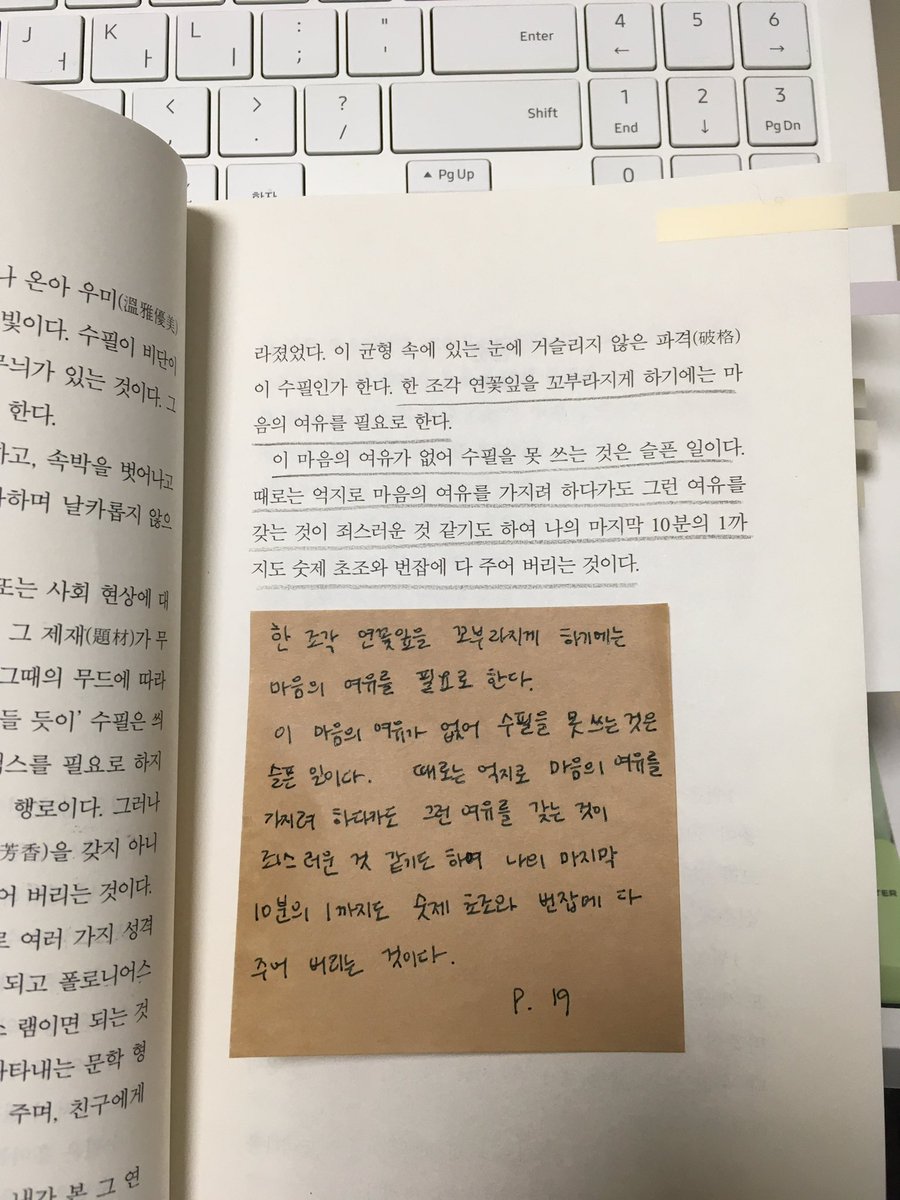 J ㅓ
K ㅏ
L ㅣ
: ;
" '
Enter
4 ←
5
6 →
< ,
> .
? /
Shift
1 End
2 ↓
3 Pg Dn
한자
▲ Pg Up
0
나 온아 우미(溫雅優美)
빛이다. 수필이 비단이
무늬가 있는 것이다. 그
한다.
하고, 속박을 벗어나고
하며 날카롭지 않으
또는 사회 현상에 대
그 제재(題材)가 무
그때의 무드에 따라
들 듯이’ 수필은 씌
스를 필요로 하지
행로이다. 그러나
(芳香)을 갖지 아니
어 버리는 것이다.
로 여러 가지 성격
되고 폴로니어스
스 램이면 되는 것
나타내는 문학 형
주며, 친구에게
내가 본 그 연
라졌었다. 이 균형 속에 있는 눈에 거슬리지 않은 파격(破格)
이 수필인가 한다. 한 조각 연꽃잎을 꼬부라지게 하기에는 마
음의 여유를 필요로 한다.
이 마음의 여유가 없어 수필을 못 쓰는 것은 슬픈 일이다.
때로는 억지로 마음의 여유를 가지려 하다가도 그런 여유를
갖는 것이 죄스러운 것 같기도 하여 나의 마지막 10분의 1까
지도 숫제 초조와 번잡에 다 주어 버리는 것이다.
한 조각 연꽃잎을 꼬부라지게 하기에는
마음의 여유를 필요로 한다.
이 마음의 여유가 없어 수필을 못 쓰는 것은
슬픈 일이다. 때로는 억지로 마음의 여유를
가지려 하다가도 그런 여유를 갖는 것이
죄스러운 것 같기도 하여 나의 마지막
10분의 1까지도 숫제 초조와 번잡에 다
주어 버리는 것이다.
P. 19